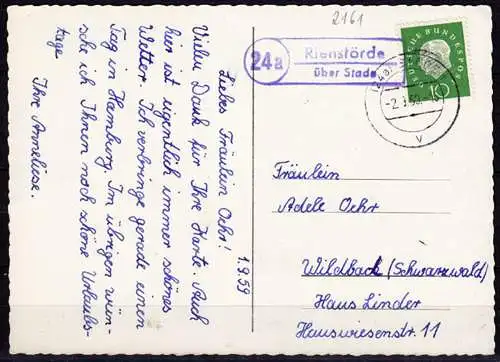 2161
24a
Rienstörde
über Stade
DEUTSCHE BUNDESPOST
10
1.9.59
Liebes Fräulein Oehr!
Vielen Dank für Ihre Karte. Auch
hier ist eigentlich immer schönes
Wetter. Ich verbringe gerade einen
Tag in Hamburg. Im übrigen wün-
sche ich Ihnen noch schöne Urlaubs-
tage
Ihre Anneliese.
Fräulein
Adele Oehr
Wildback (Schwarzwald)
Haus Linder
Hauswiesenstr. 11